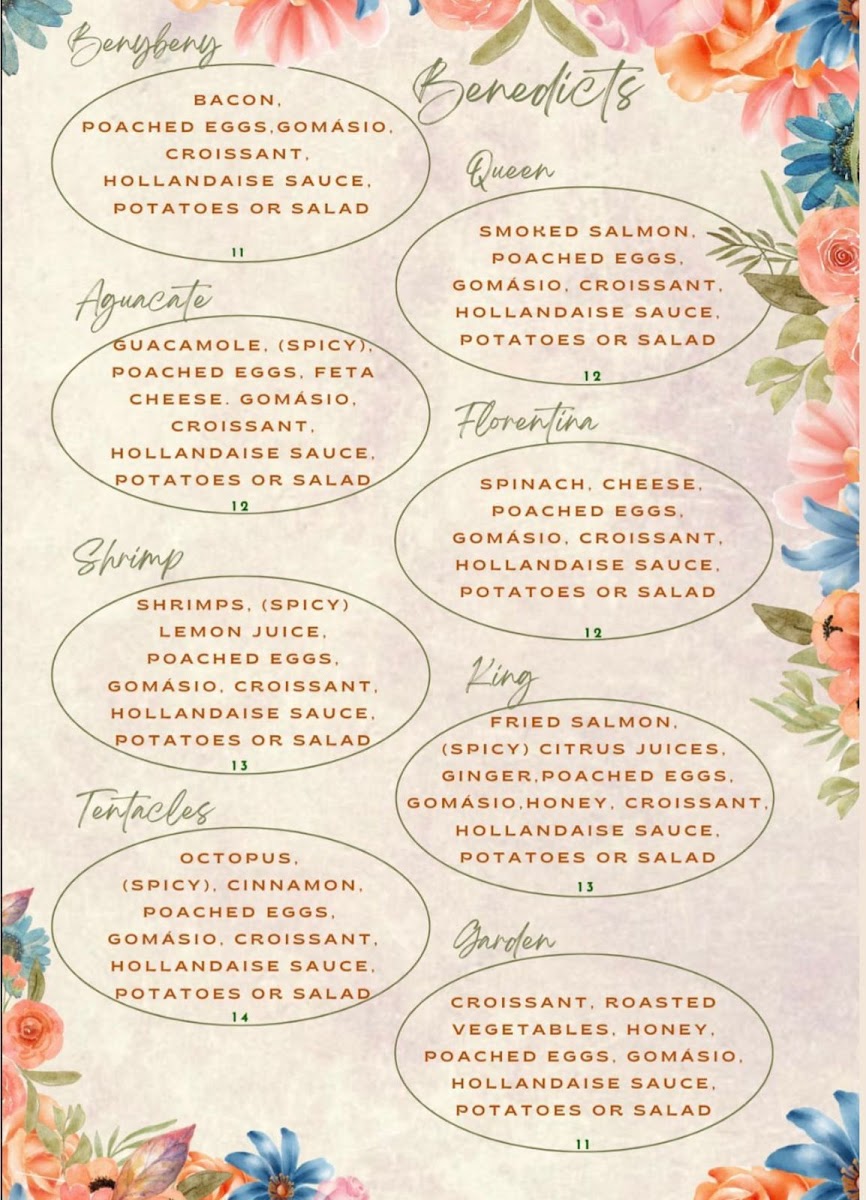 Benybeny
BACON,
POACHED EGGS,GOMÁSIO,
CROISSANT,
HOLLANDAISE SAUCE,
POTATOES OR SALAD
11
Aguacate
GUACAMOLE, (SPICY),
POACHED EGGS, FETA
CHEESE. GOMÁSIO,
CROISSANT,
HOLLANDAISE SAUCE,
POTATOES OR SALAD
12
Shrimp
SHRIMPS, (SPICY)
LEMON JUICE,
POACHED EGGS,
GOMÁSIO, CROISSANT,
HOLLANDAISE SAUCE,
POTATOES OR SALAD
13
Tentacles
OCTOPUS,
(SPICY), CINNAMON,
POACHED EGGS,
GOMÁSIO, CROISSANT,
HOLLANDAISE SAUCE,
POTATOES OR SALAD
14
Benedicts
Queen
SMOKED SALMON,
POACHED EGGS,
GOMÁSIO, CROISSANT,
HOLLANDAISE SAUCE,
POTATOES OR SALAD
12
Florentina
SPINACH, CHEESE,
POACHED EGGS,
GOMÁSIO, CROISSANT,
HOLLANDAISE SAUCE,
POTATOES OR SALAD
12
King
FRIED SALMON,
(SPICY) CITRUS JUICES,
GINGER,POACHED EGGS,
GOMÁSIO,HONEY, CROISSANT,
HOLLANDAISE SAUCE,
POTATOES OR SALAD
13
Garden
CROISSANT, ROASTED
VEGETABLES, HONEY,
POACHED EGGS, GOMÁSIO,
HOLLANDAISE SAUCE,
POTATOES OR SALAD
11